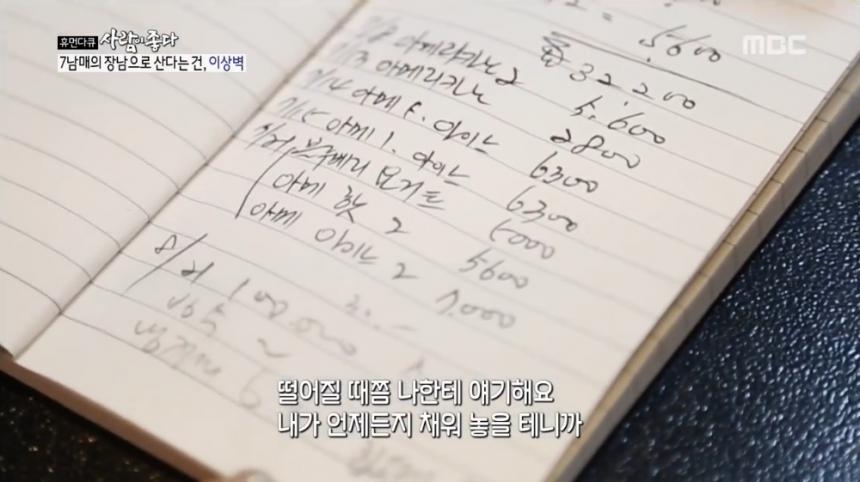 휴먼다큐 사람이 좋다
7남매의 장남으로 산다는 건, 이상벽
MBC
5.600
32.200
7/8 아메리카노 2 5.600
7/13 아메리카노 2800
아메 아이스 6300
아메 1. 아이스 6300
요거트 5000
아메 핫 2 5600
아메 아이스 2 7.000
8/21 100.000
떨어질 때쯤 나한테 얘기해요
내가 언제든지 채워 놓을 테니까